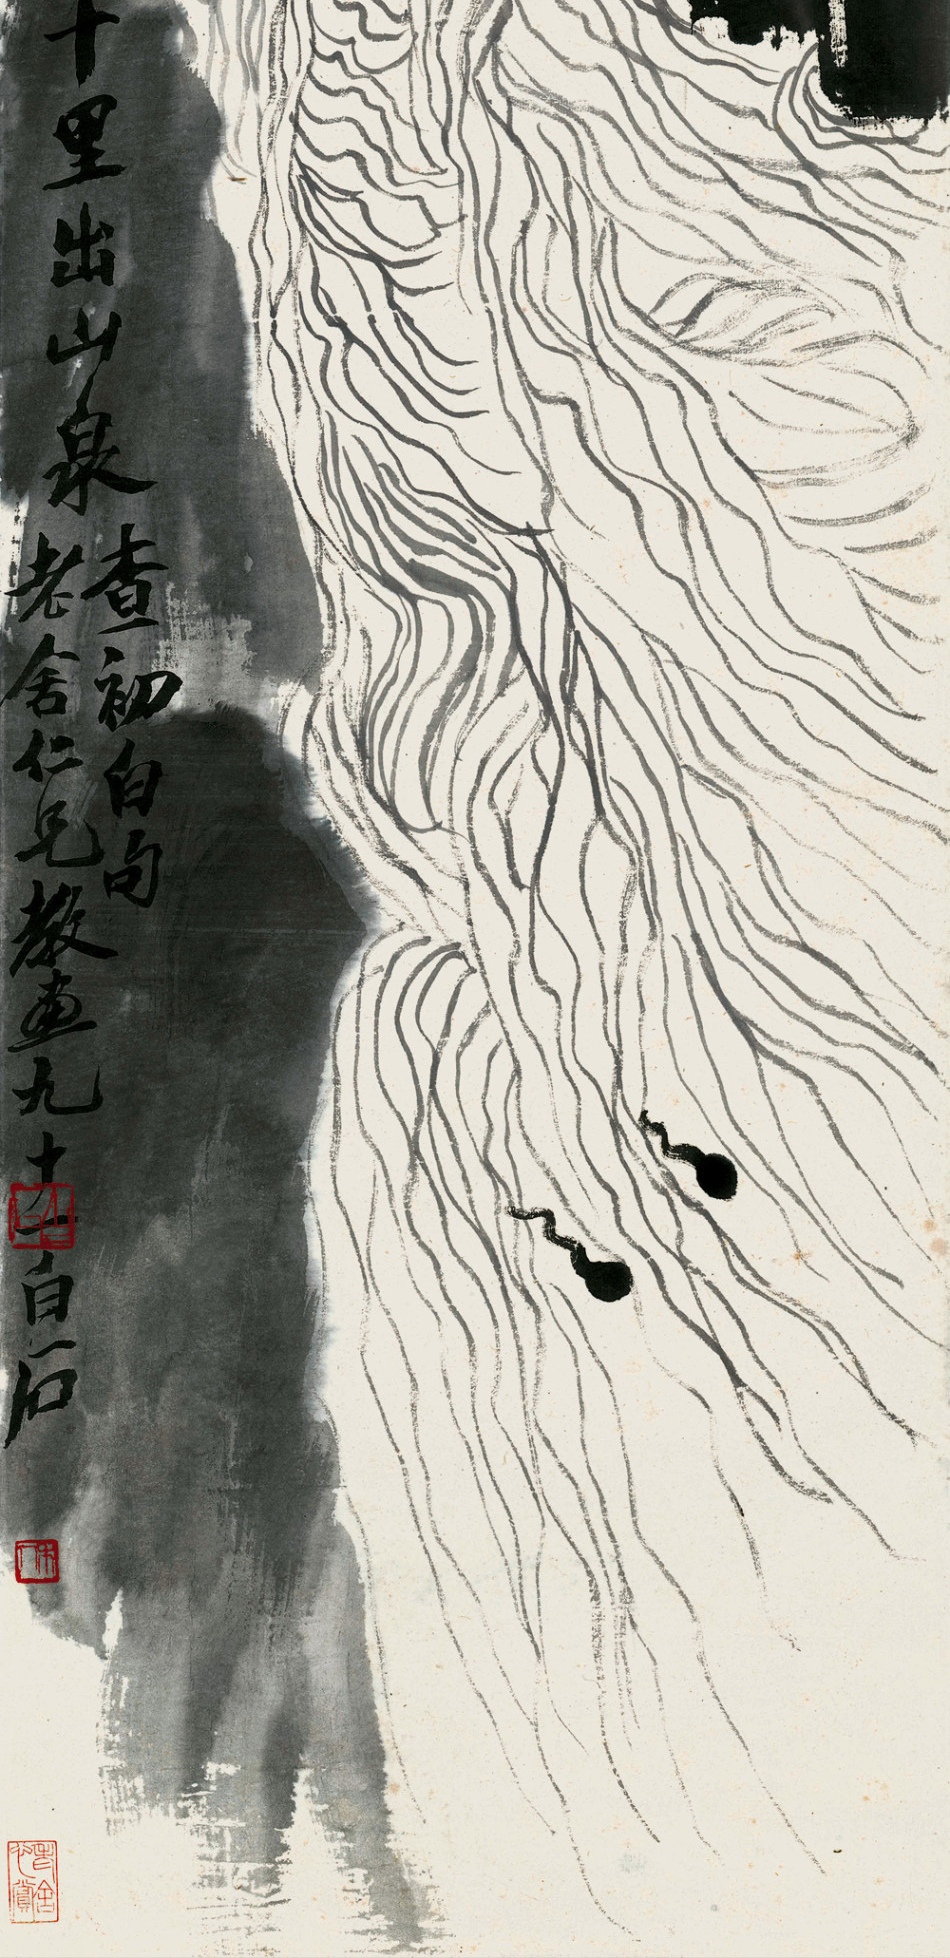 十里出山泉
查初白句
老舍仁兄教画九十一白石
老舍心賞